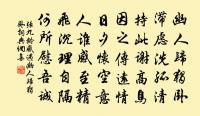 幽人歸獨臥
滯慮洗孤清
持此謝高鳥
因之傳遠情
日夕懷空意
人誰感至精
飛沉理自隔
何所慰吾誠
張九齡感遇幽人歸獨
臥詞典網集